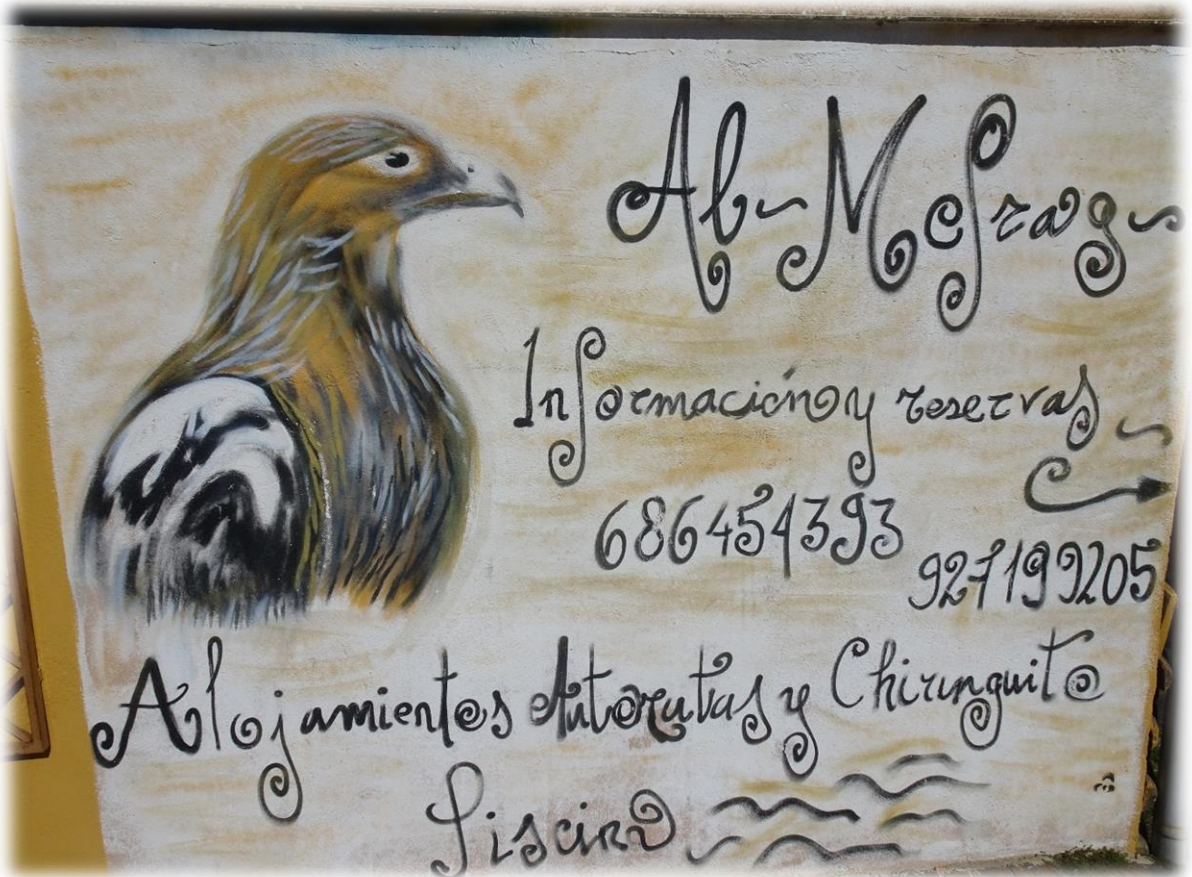 Al-Mofrag
Información y reservas
686454393
927199205
Alojamientos Autorutas y Chiringuito
Piscina